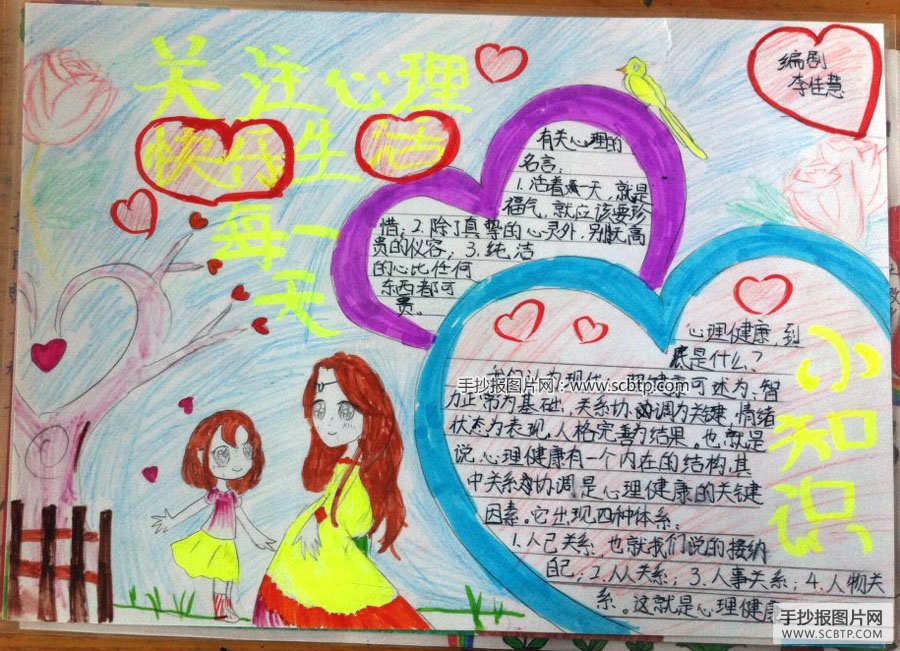 关注心理
快乐生活
每一天
编剧
李佳慧
有关心理的
名言:
1.活着一天,就是
福气,就应该要珍
惜;2.除了真挚的心灵外,别无高
贵的仪容;3.纯洁
的心比任何
东西都可
贵。
心理健康,到
底是什么?
小知识
我们认为现代心理健康可述为:智
力正常为基础,关系协调为关键,情绪
状态为表现,人格完善为结果。也就是
说,心理健康有一个内在的结构,其
中关系协调是心理健康的关键
因素。它出现四种体系:
1.人己关系,也就我们说的接纳
自己;2.人人关系;3.人事关系;4.人物关
系。这就是心理健康
手抄报图片网:www.scbtp.com
手抄报图片网
WWW.SCBTP.COM